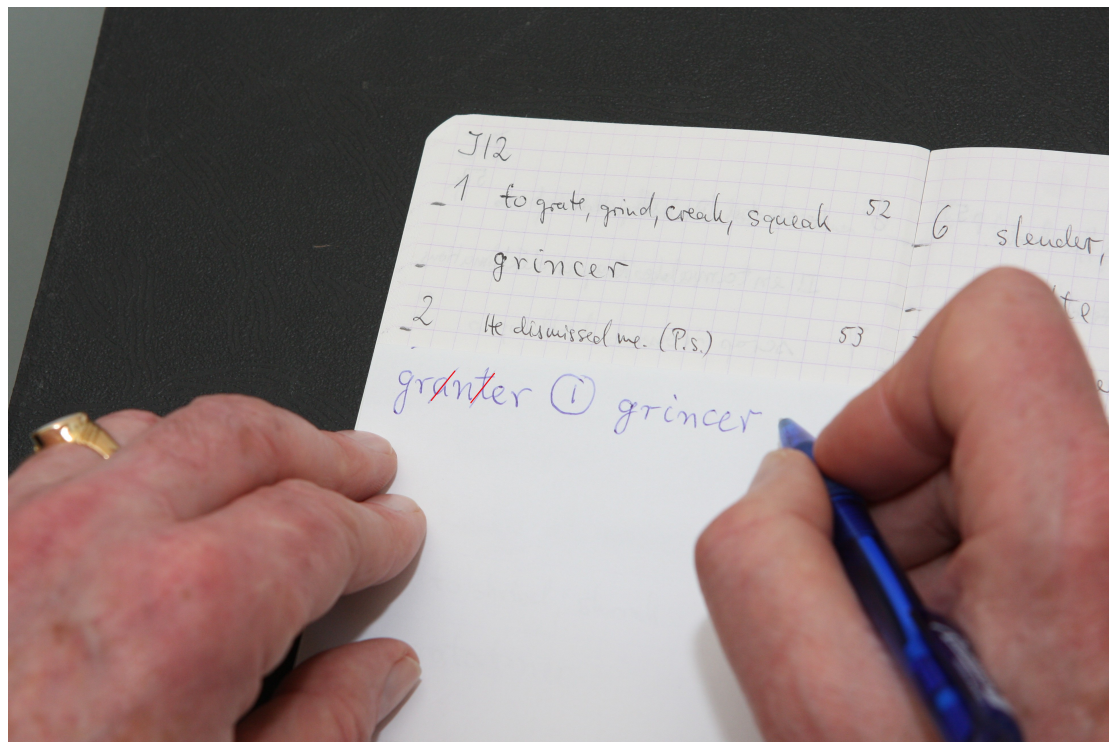 J12
1 to grate, grind, creak, squeak 52
grincer
2 He dismissed me. (P.s.) 53
granter 1 grincer
6 slender,